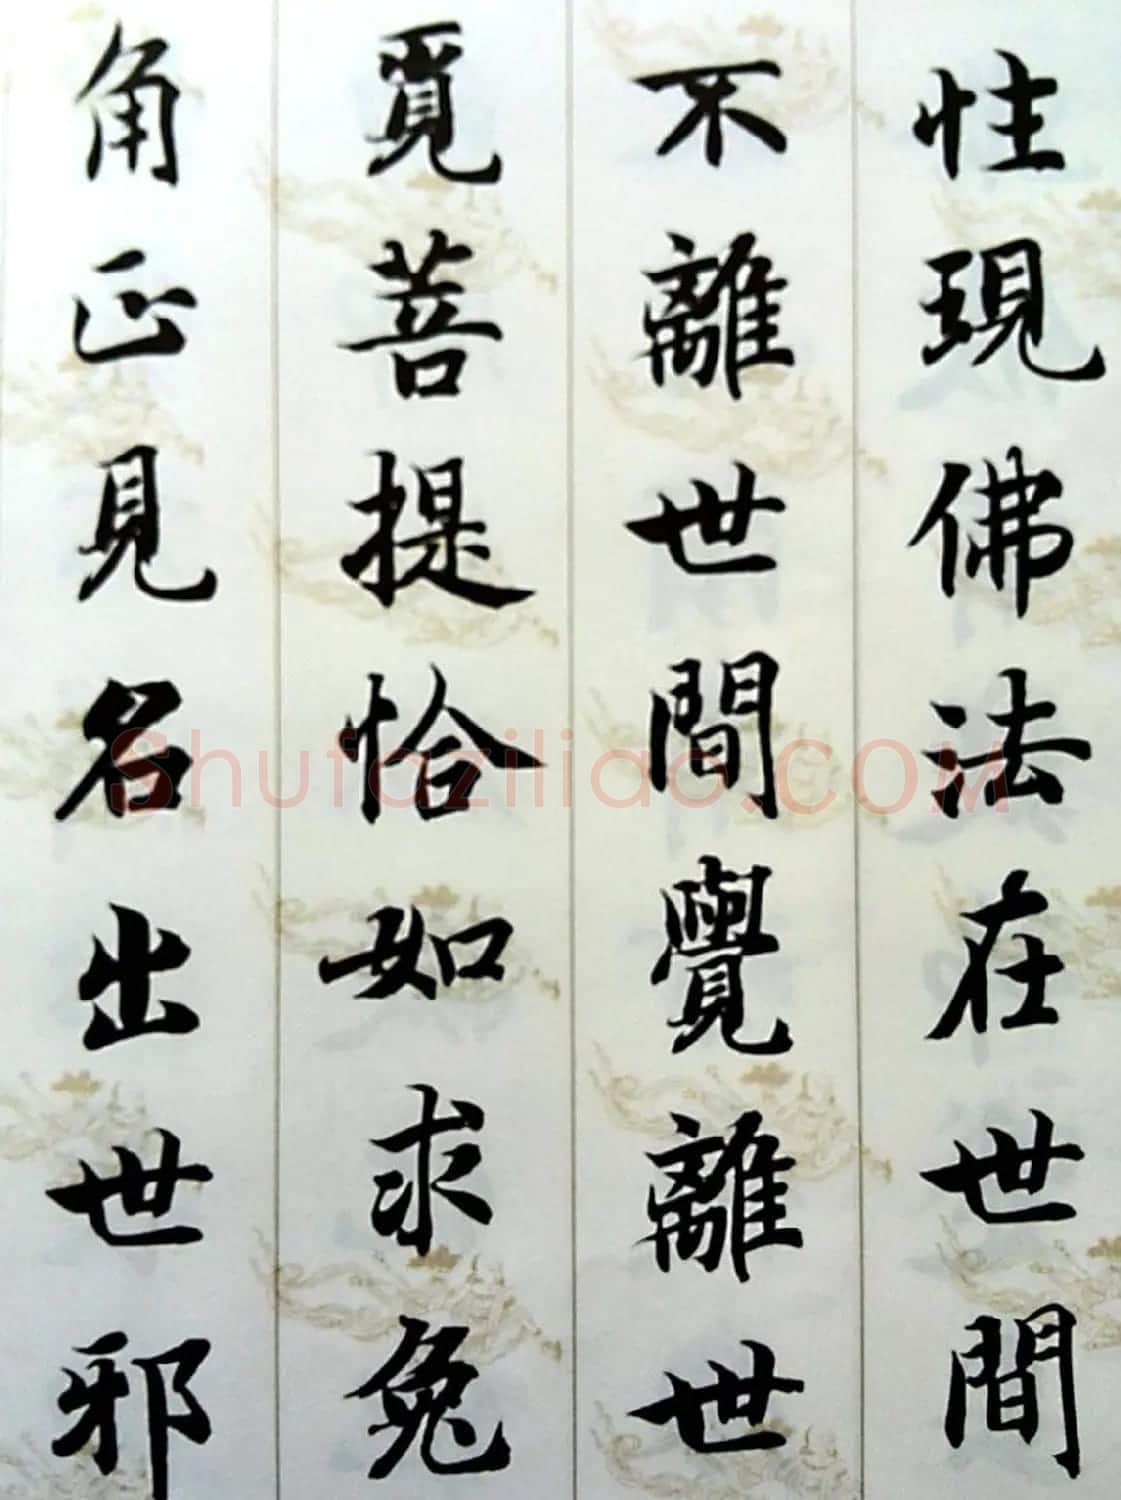 性現佛法在世間
不離世間覺離世
覓菩提恰如求兔
角正見名出世邪
Shufaziliao.COM